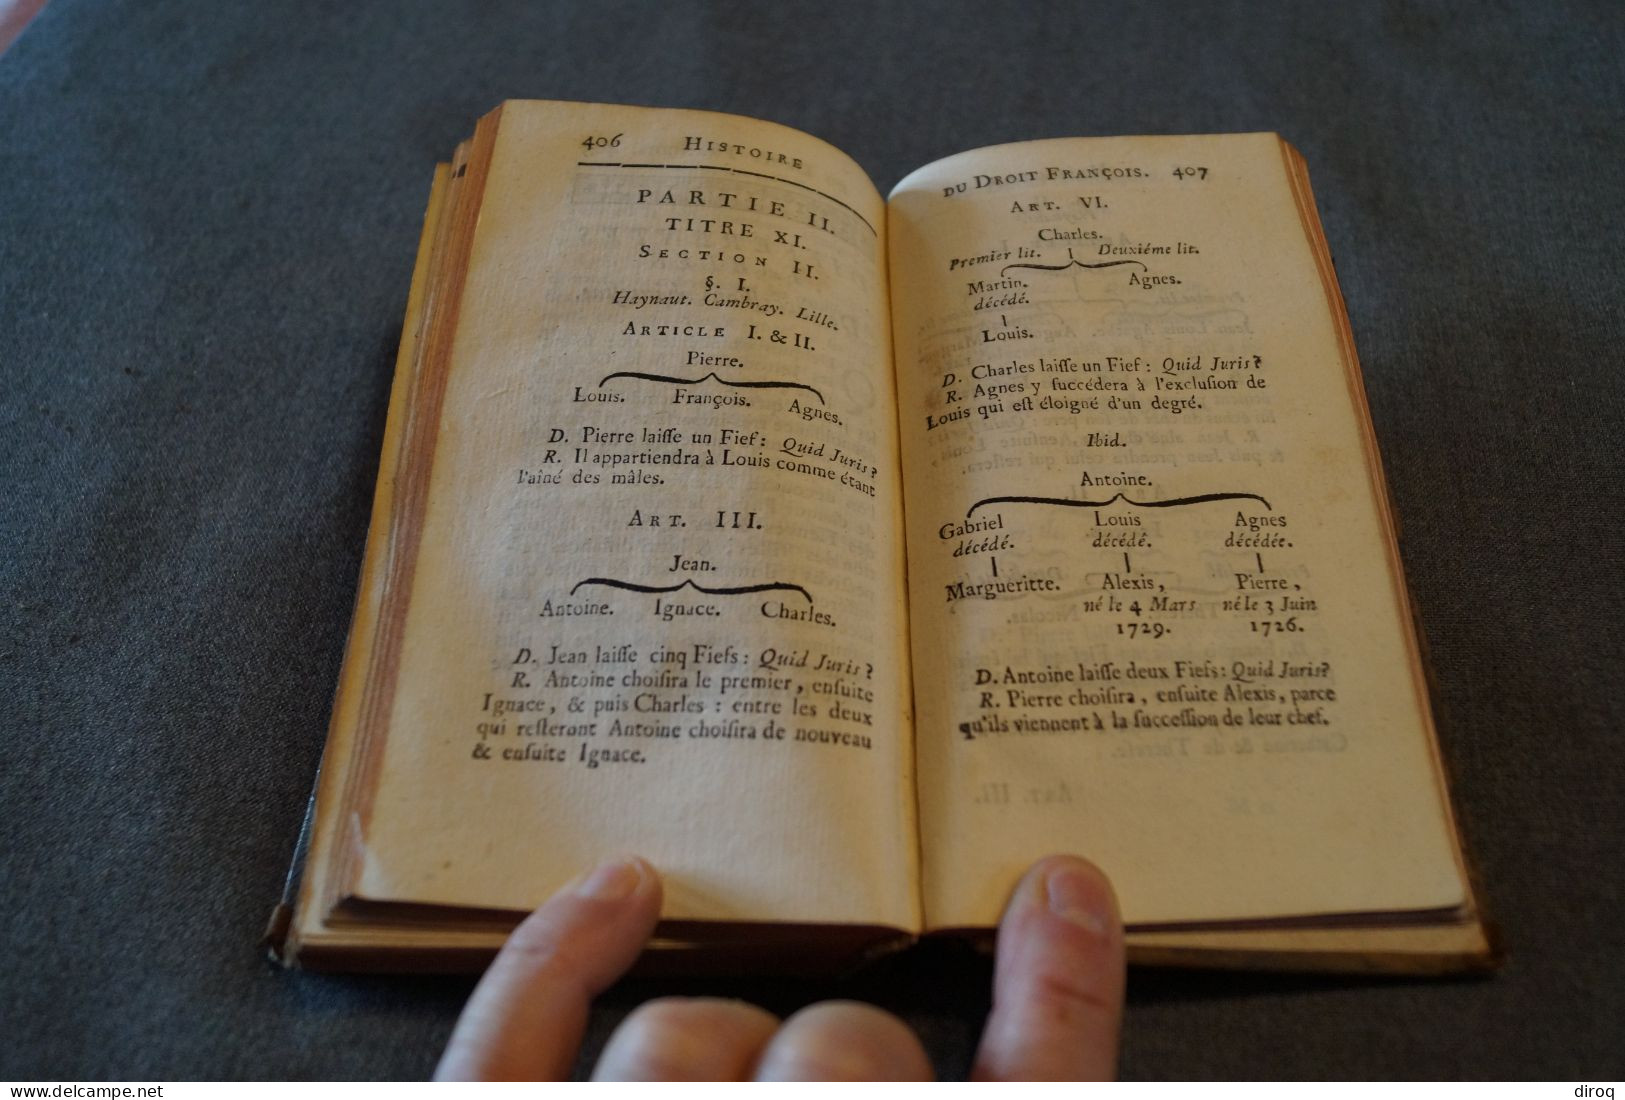 406 HISTOIRE
PARTIE II.
TITRE XI.
SECTION II.
§. I.
Haynaut. Cambray. Lille.
ARTICLE I. & II.
Pierre.
Louis. François. Agnes.
D. Pierre laiſſe un Fief : Quid Juris?
R. Il appartiendra à Louis comme étant
l'aîné des mâles.
ART. III.
Jean.
Antoine. Ignace. Charles.
D. Jean laiſſe cinq Fiefs : Quid Juris?
R. Antoine choiſira le premier, enſuite
Ignace, & puis Charles : entre les deux
qui reſteront Antoine choiſira de nouveau
& enſuite Ignace.
DU DROIT FRANÇOIS. 407
ART. VI.
Charles.
Premier lit. Deuxiéme lit.
Martin. Agnes.
décédé.
Louis.
D. Charles laiſſe un Fief : Quid Juris?
R. Agnes y ſuccédera à l'excluſion de
Louis qui eſt éloigné d'un degré.
Ibid.
Antoine.
Gabriel Louis Agnes
décédé. décédé. décédée.
Margueritte. Alexis, Pierre,
né le 4 Mars né le 3 Juin
1729. 1726.
D. Antoine laiſſe deux Fiefs : Quid Juris?
R. Pierre choiſira, enſuite Alexis, parce
qu'ils viennent à la ſucceſſion de leur chef.
delcampe.net
diroq